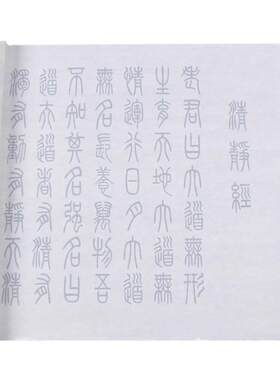 清靜經
老君曰大道無形
生育天地大道無
情運行日月大道
無名長養萬物吾
不知其名強名曰
道夫道者有清有
濁有動有靜天清